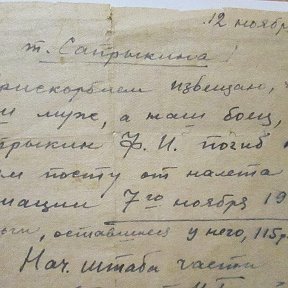 12 нояб
т. Сапрыкина!
прискорбием извещаи,
муж, а наш боец,
прыкин Ф. И. погиб
м посту от налета
иации 7го ноября 19
ьги, оставшиеся у него, 115р
Нач. штаба части